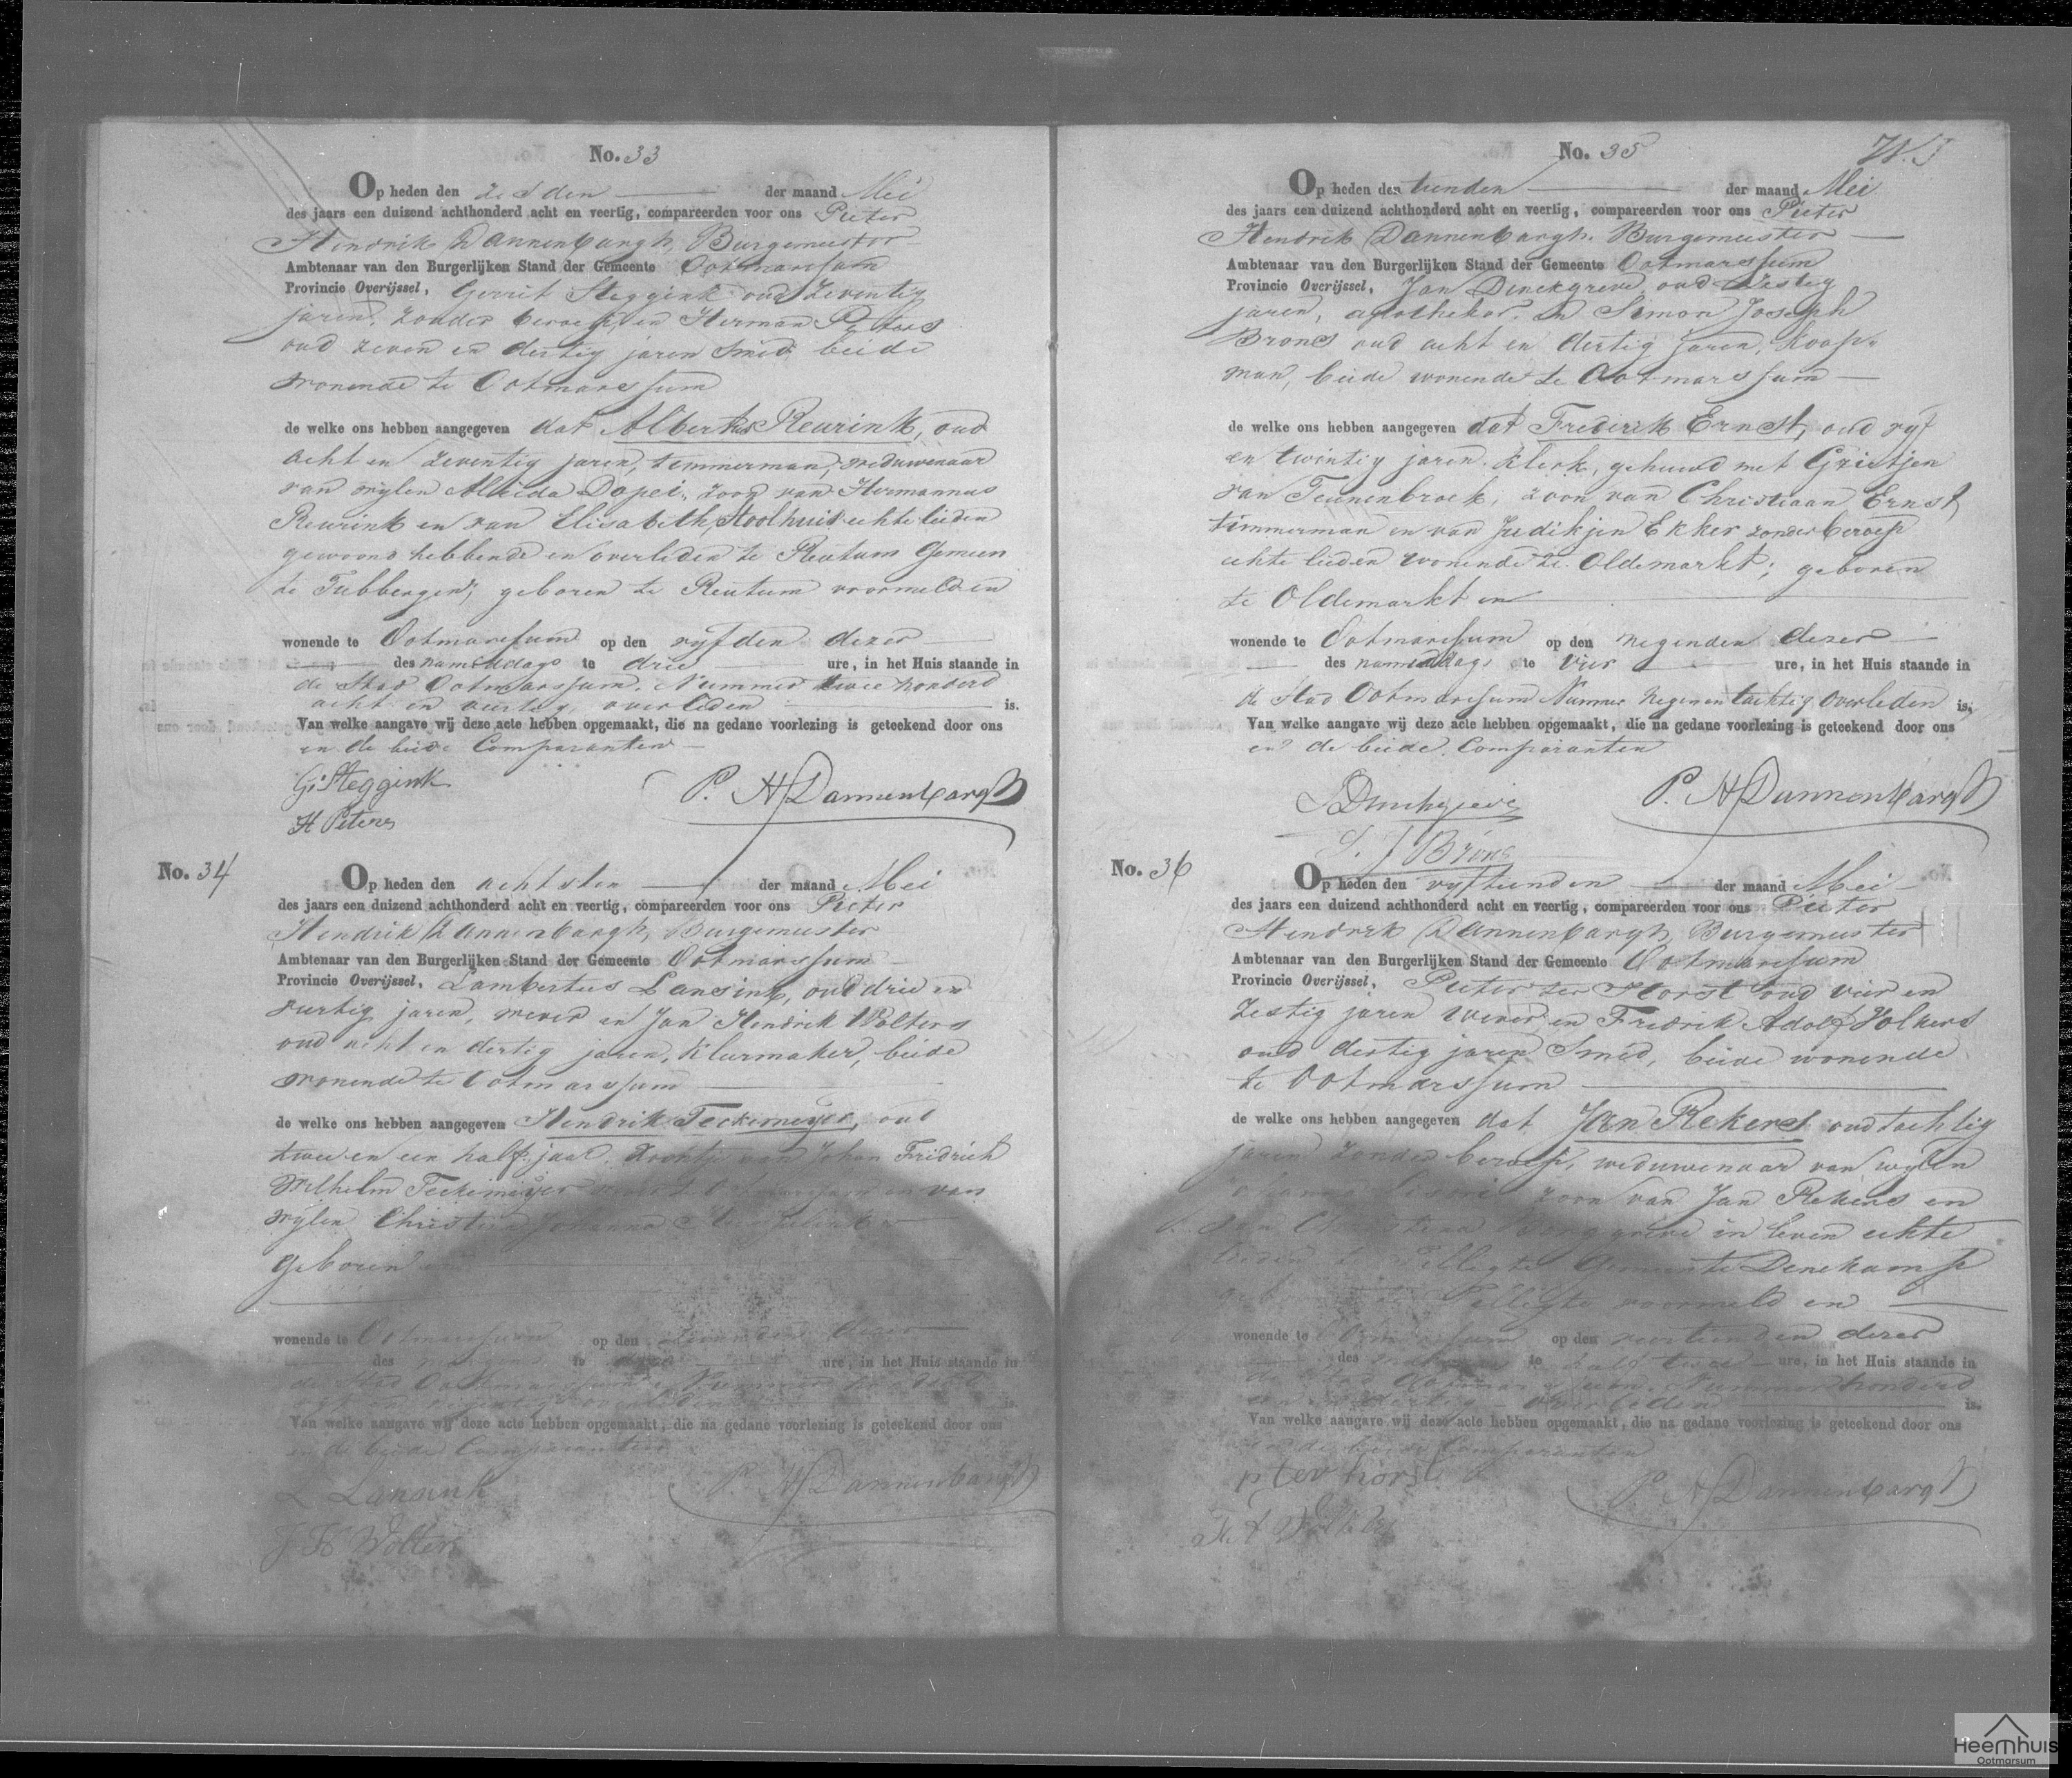 No. 33
Op heden den zesden der maand Mei
des jaars een duizend achthonderd acht en veertig, compareerden voor ons Pieter
Hendrik Dannenbargh, Burgemeester
Ambtenaar van den Burgerlijken Stand der Gemeente Ootmarssum
Provincie Overijssel, Gerrit Steggink oud zeventig
jaren, zonder beroep, en Herman Peters
oud zeven en dertig jaren Smid, beide
wonende te Ootmarssum
de welke ons hebben aangegeven dat Albertus Reurink, oud
acht en zeventig jaren, timmerman, weduwenaar
van wijlen Aleida Dopei, zoon van Hermannus
Reurink en van Elisabeth Stoolhuis echte lieden
gewoond hebbende en overleden te Reutum Gemeen
te Tubbergen; geboren te Reutum voormeld en
wonende te Ootmarssum op den vyfden dezer
des namiddags te drie ure, in het Huis staande in
de Stad Ootmarssum, Nummer twee honderd
acht en veertig, overleden is.
Van welke aangave wij deze acte hebben opgemaakt, die na gedane voorlezing is geteekend door ons
en de beide Comparanten
G: Steggink P. H Dannenbargh
H Peters
No. 34
Op heden den achtsten der maand Mei
des jaars een duizend achthonderd acht en veertig, compareerden voor ons Pieter
Hendrik Dannenbargh, Burgemeester
Ambtenaar van den Burgerlijken Stand der Gemeente Ootmarssum
Provincie Overijssel, Lambertus Lansink, oud drie en
veertig jaren, wever en Jan Hendrik Wolters
oud acht en dertig jaren, Kleermaker, beide
wonende te Ootmarssum
de welke ons hebben aangegeven Hendrik Teckemeyer, oud
twee en een half jaar, van Johan Fredrich
Wilhelm Teckemeyer en van
wylen Christina Johanna
geboren en
wonende te Ootmarssum op den zevenden dezer
des te ure, in het Huis staande in
de Stad Ootmarssum, Nummer
overleden is.
Van welke aangave wij deze acte hebben opgemaakt, die na gedane voorlezing is geteekend door ons
en de beide Comparanten
L Lansink P. H Dannenbargh
J H Wolters
No. 35
Op heden den tienden der maand Mei
des jaars een duizend achthonderd acht en veertig, compareerden voor ons Pieter
Hendrik Dannenbargh, Burgemeester
Ambtenaar van den Burgerlijken Stand der Gemeente Ootmarssum
Provincie Overijssel, Jan Denekgreve, oud Zestig
jaren, apotheker, en Simon Joseph
Brons oud acht en dertig jaren, Koop-
man, beide wonende te Ootmarssum
de welke ons hebben aangegeven dat Frederik Ernst, oud vyf
en twintig jaren, Klerk, gehuwd met Grietjen
van Teunenbroek, zoon van Christiaan Ernst
timmerman en van Judikjen Ekker zonder beroep
echte lieden wonende te Oldemarkt; geboren
te Oldemarkt en
wonende te Ootmarssum op den negenden dezer
des namiddags te vier ure, in het Huis staande in
de Stad Ootmarssum Nummer negen en tachtig overleden is.
Van welke aangave wij deze acte hebben opgemaakt, die na gedane voorlezing is geteekend door ons
en de beide Comparanten
P. H Dannenbargh
S. J Brons
No. 36
Op heden den vyftienden der maand Mei
des jaars een duizend achthonderd acht en veertig, compareerden voor ons Pieter
Hendrik Dannenbargh Burgemeester
Ambtenaar van den Burgerlijken Stand der Gemeente Ootmarssum
Provincie Overijssel, Pieter ter Horst oud vier en
Zestig jaren wever, en Fredrik Adolf Volkers
oud dertig jaren Smid, beide wonende
te Ootmarssum
de welke ons hebben aangegeven dat Jan Rekers oud tachtig
jaren zonder beroep, weduwenaar van wylen
zoon van Jan Rekers en
van Christina in leven echte
lieden te Tilligte Gemeente Denekamp
geboren te Tilligte voormeld en
wonende te Ootmarssum op den veertienden dezer
des te half twee ure, in het Huis staande in
de Stad Ootmarssum, Nummer honderd
een en dertig overleden is.
Van welke aangave wij deze acte hebben opgemaakt, die na gedane voorlezing is geteekend door ons
en de beide Comparanten
p ter horst P. H Dannenbargh
Heemhuis
Ootmarsum